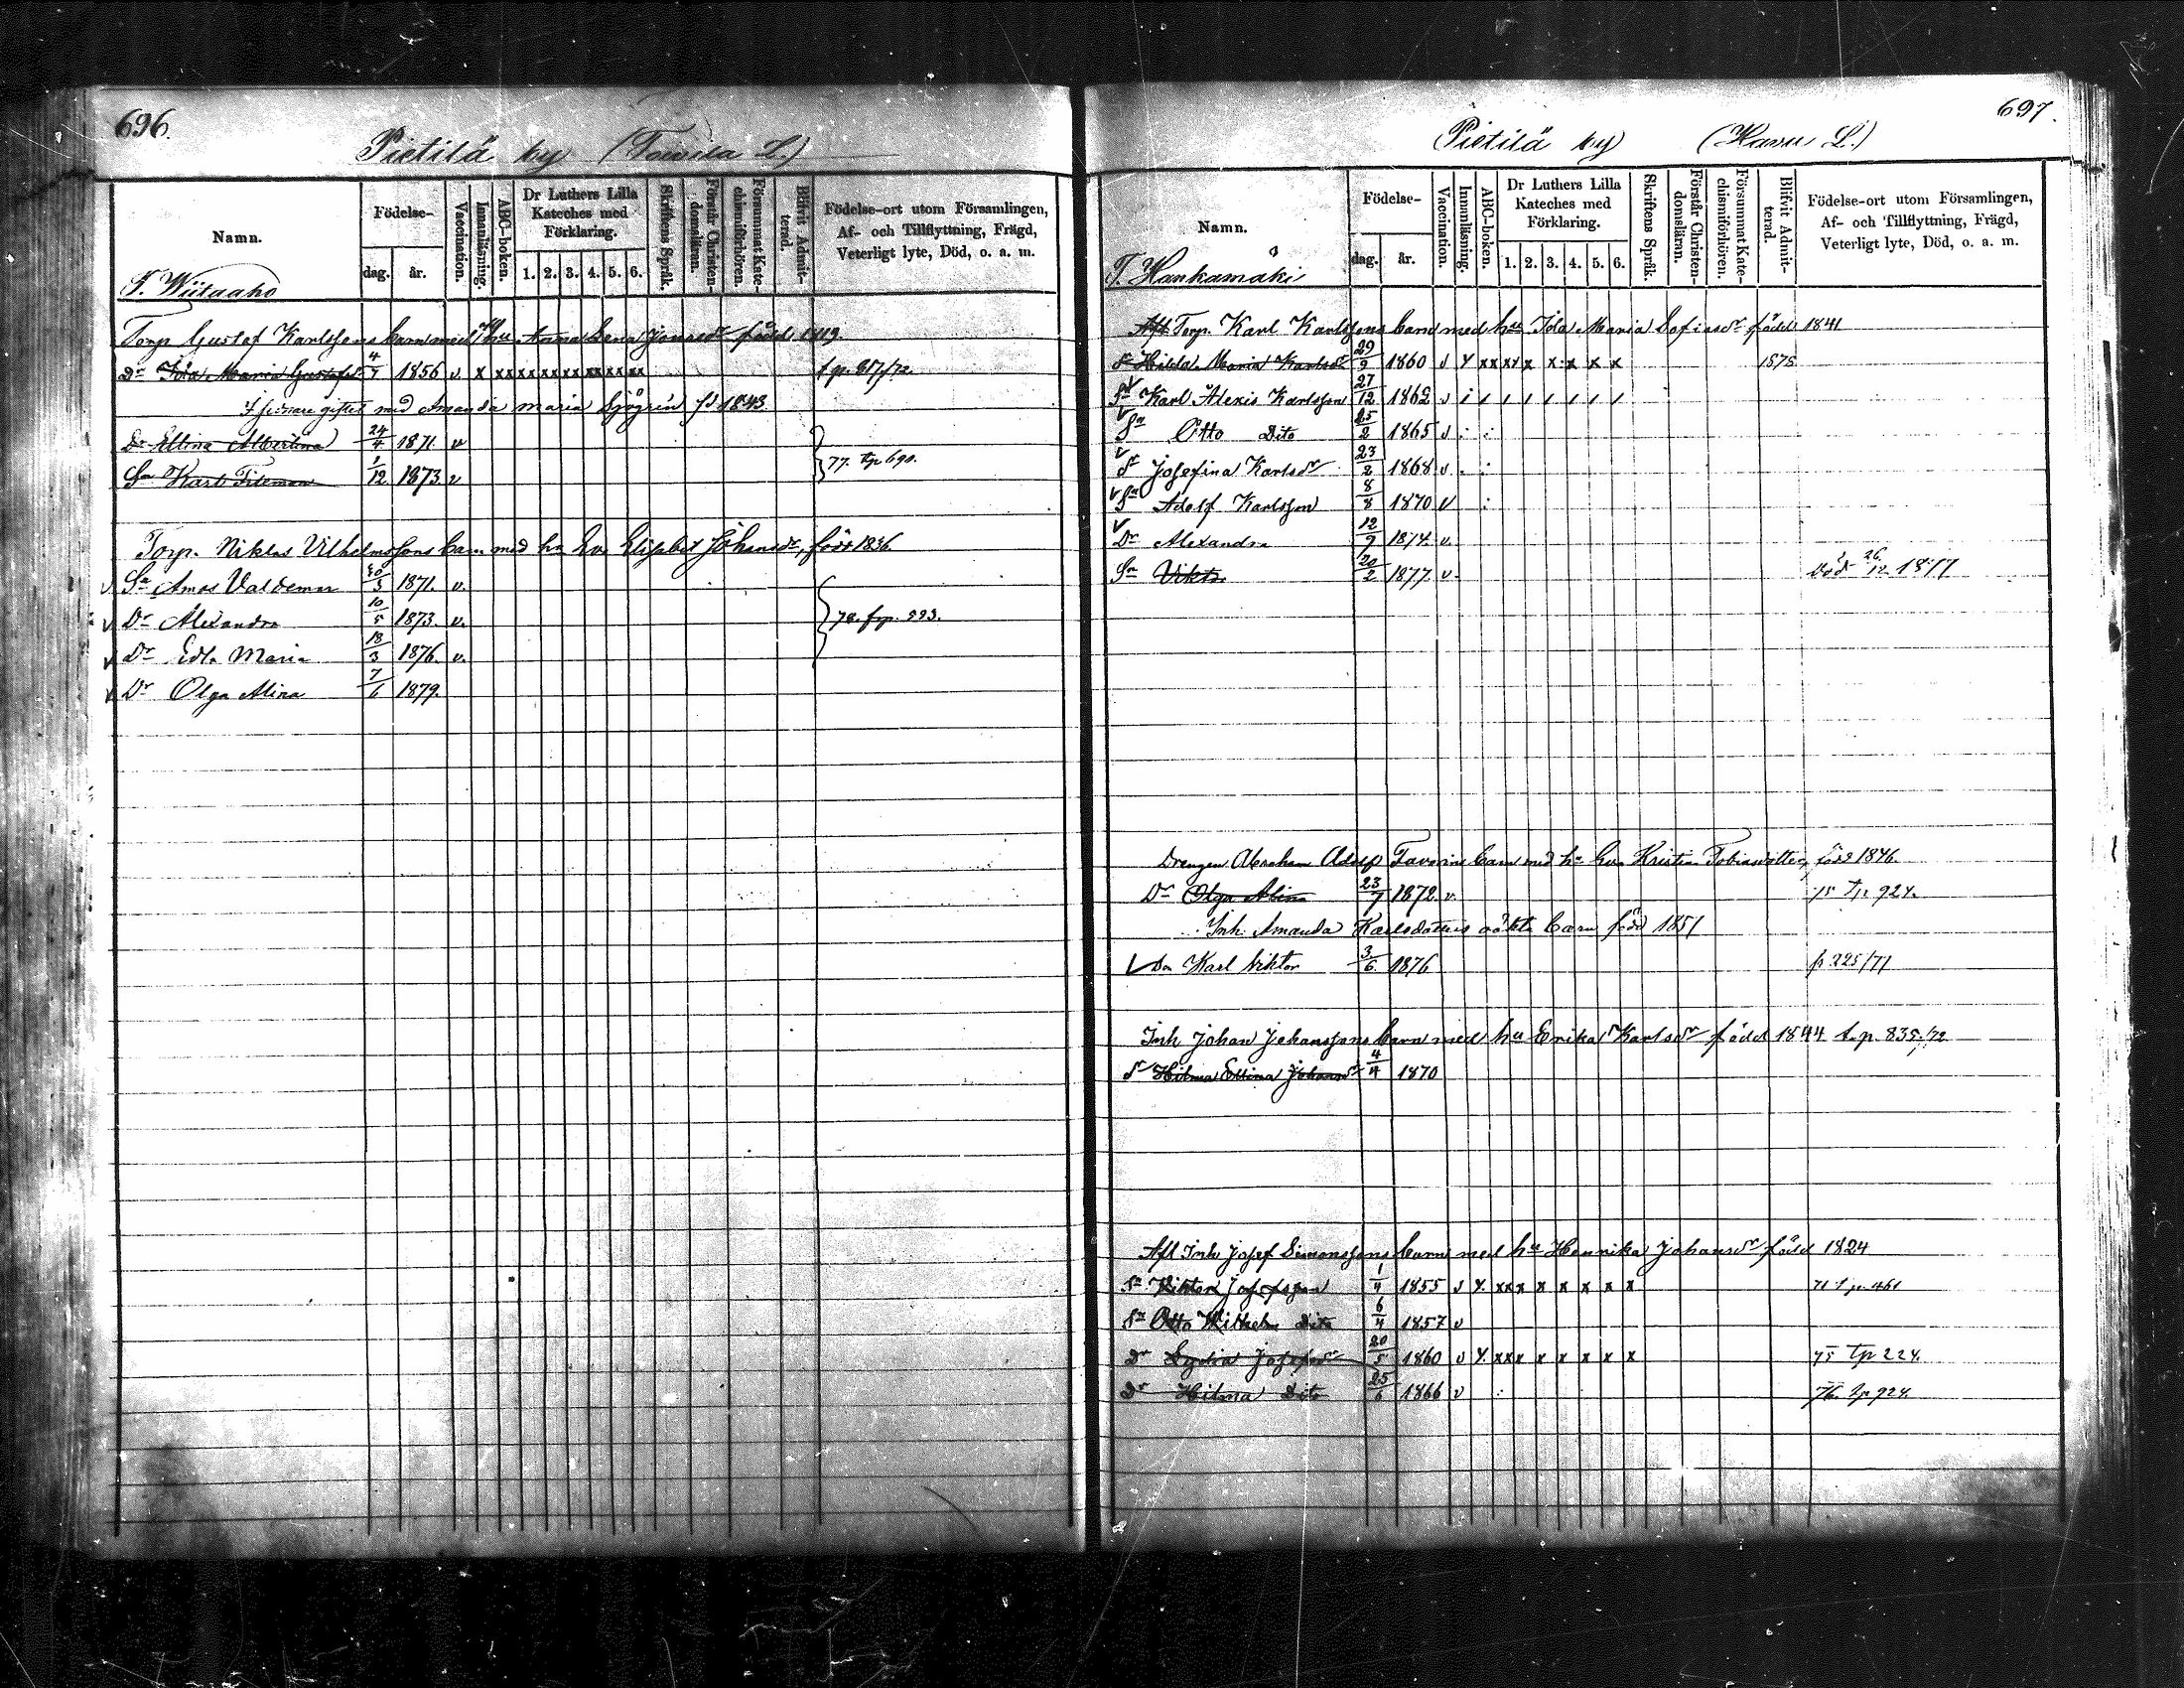 696.
Pietilä by (Towila L.)
Namn.
Födelse-
dag.
år.
Vaccination.
Innanläsning.
ABC-boken.
Dr Luthers Lilla Kateches med Förklaring.
1. 2. 3. 4. 5. 6.
Skriftens Språk.
Förstår Christen-domsläran.
Försummat Kate-chismiförhören.
Blifvit Admit-terad.
Födelse-ort utom Församlingen, Af- och Tillflyttning, Frägd, Veterligt lyte, Död, o. a. m.
T. Wiitaaho
Torp Gustaf Karlssons barn med hu Anna Lena Jonasdr född 1819.
Dr Ida Maria Gustafsdr 4/7 1856 v x xx xx xx xx xx xx xx t.p. 817/72.
I senare giftet med Amanda Maria Sjögrén fd 1843
Dr Ellina Albertina 24/4 1871. v
Sn Karl Fileman 1/12 1873 v } 77. tp 690.
Torp. Niklas Vilhelmssons barn med hu Eva Elisabet Johansdr, född 1836
v Sn Amos Valdemar 30/3 1871. v.
v Dr Alexandra 10/5 1873. v. } 78. frp. 593.
v Dr Edla Maria 18/3 1876. v.
v Dr Olga Alina 7/6 1879.
697.
Pietilä by (Hasu L.)
Namn.
Födelse-
dag.
år.
Vaccination.
Innanläsning.
ABC-boken.
Dr Luthers Lilla Kateches med Förklaring.
1. 2. 3. 4. 5. 6.
Skriftens Språk.
Förstår Christen-domsläran.
Försummat Kate-chismiförhören.
Blifvit Admit-terad.
Födelse-ort utom Församlingen, Af- och Tillflyttning, Frägd, Veterligt lyte, Död, o. a. m.
T. Hankamäki
Aft Torp. Karl Karlssons barn med hu Ida Maria Sofiasdr född 1841
Hilda Maria Karlsdr 29/9 1860 v Y xx xx x x x x x 1875
v Sn Karl Alexis Karlsson 27/12 1862 v
v Sn Otto Dito 25/2 1865 v
v Dr Josefina Karlsdr 23/2 1868 v
v Sn Adolf Karlsson 8/8 1870 v
v Dr Alexandra 12/9 1874. v.
Sn Viktor 20/2 1877. v. Död 26/12 1877
Drengen Abraham Adolf Tavorins barn med hu Eva Kristina född 1846
Dr Olga Alina 23/7 1872 v. 75 tp 924.
Inh. Amanda Karlsdotters oäkta barn född 1851
Karl Viktor 3/6 1876 p 225/77
Inh Johan Johanssons barn med hu Erika Karlsdr född 1844 t.p. 835/72
Hilma Ellina Johansdr 4/4 1870
Afl Inh Josef Simonssons barn med hu Hennrika Johansdr född 1824
Sn Viktor Josefsson 1/4 1855 v Y. xx x x x x x x 71 t.p. 461
Sn Otto Wilhelm Dito 6/4 1857 v
Dr Lydia Josefsdr 20/5 1860 v Y. xx x x x x x x 75 tp 224.
Dr Hilma Dito 25/6 1866 v 76. tp 924.